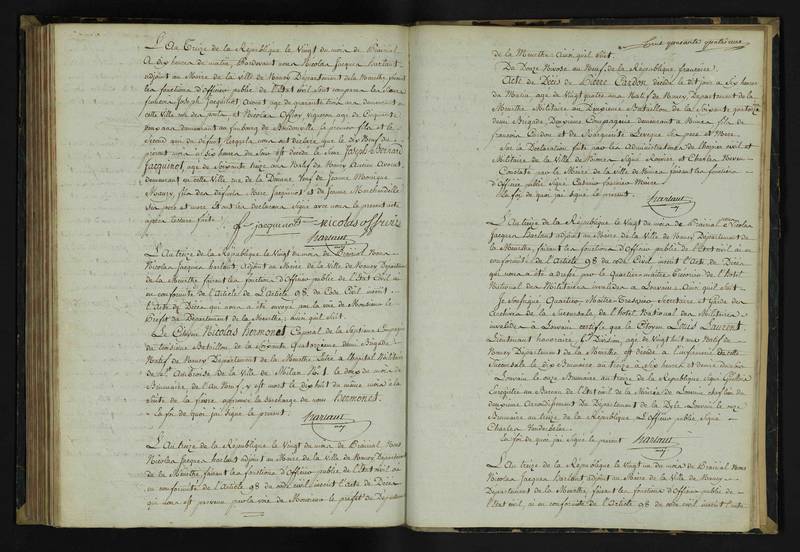 L'An Treize de la République le Vingt du mois de Prairial
A dix heures du matin, Pardevant nous Nicolas Jacques harlaut
adjoint au Maire de la Ville de Nancy Département de la Meurthe, faisant
les fonctions d'officier public de l'État civil sont comparus les Sieurs
Joseph Jacquinot Avoué agé de quarante trois ans demeurant
cette Ville rue des et Nicolas Offroy vigneron agé de Cinquante
ans demeurant au faubourg de le premier fils et le
Second ami du défunt lesquels nous ont déclaré que le dix Neuf du
présent mois à dix heures du soir est décédé le Sieur Joseph Bernard
Jacquinot, agé de Soixante treize ans Natif de Nancy Ancien Avocat,
demeurant en cette Ville rue de la Douane Veuf de Jeanne Monique
Maury, fils des défunts Jacquinot et de Jeanne
ses père et mere Et ont les déclarans Signé avec nous le présent acte
après lecture faite
jacquinot nicolas offroy
harlaut
L'An treize de la République le Vingt du mois de Prairial Nous
Nicolas Jacques harlaut adjoint au Maire de la Ville de Nancy Département
de la Meurthe, faisant les fonctions d'officier public de l'État Civil ai
en conformité de l'Article de L'Article 98. du Code Civil inscrit
l'Acte de Décès qui nous a été envoyé par la voie de Monsieur le
Préfet du Département de la Meurthe; Ainsi qu'il Suit.
Le Citoyen Nicolas hermonet Caporal de la Septieme Compagnie
du troisieme Bataillon de la Soixante Quatorzieme demi Brigade
Natif de Nancy Département de la Meurthe Entré a l'hopital Militaire
de St. Ambroise de la Ville de Milan No. 1. le douze du mois de
Brumaire, de l'An Neuf, y est mort le dix huit du même mois a la
Suite de la fievre hermonet
la foi de quoi j'ai signé le présent.
harlaut
L'An treize de la République le Vingt du mois de Prairial Nous
Nicolas Jacques harlaut adjoint au Maire de la Ville de Nancy Département
de la Meurthe, faisant les fonctions d'Officier public de l'Etat Civil ai
en conformité de l'Article 98 du code civil inscrit l'Acte de Décès
qui nous est parvenu par la voie de Monsieur le préfet du Département
Cent quarante quatrieme
de la Meurthe Ainsi qu'il Suit.
Du Douze Nivose an Neuf de la République française.
Acte de Décès de Pierre Cardon décédé le dit jour a Six heures
du Matin agé de Vingt quatre ans Natif de Nancy, Département de la
Meurthe Militaire au Deuxieme Bataillon de la Soixante quatorze
demi Brigade Deuxieme Compagnie demeurant a Nimes fils de
francois Cardon et de Marguerite Leveque Ses pere et Mere.
Sur la Declaration faite par les Administrateurs de l'hopital civil et
Militaire de la Ville de Nimes Signé Rouvier et Charles
Constaté par le Maire de la Ville de Nimes faisant les fonctions
d'Officier public Signé Maire
la foi de quoi j'ai signé le présent.
harlaut
L'An treize de la République le Vingt du mois de Prairial Nous Nicolas
Jacques harlaut adjoint au Maire de la Ville de Nancy Département de
la Meurthe, faisant les fonctions d'officier public de l'État civil ai en
conformité de l'Article 98 du code Civil inscrit l'Acte de Décès
qui nous a été adressé par le Quartier maitre Tresorier de l'hotel
National des Militaires invalides a Louvain, Ainsi qu'il Suit.
Je Soussigné Quartier-Maitre-Tresorier Secretaire et Garde des
Archives de la Succursale de l'hotel National des Militaires
invalides a Louvain certifie que le Citoyen Louis Laurent.
Lieutenant honoraire, Division, agé de Vingt huit ans Natif de
Nancy Département de la Meurthe est décédé a l'infirmerie de cette
Succursale le dix Brumaire an treize a Six heures et demie du Soir
Louvain le onze Brumaire an treize de la République Signé
Enregistré au Bureau de l'État civil de la Mairie de Louvain chef lieu du
deuxieme Arrondissement du Département de la Dyle Louvain le onze
Brumaire an treize de la République L'officier public Signé
Charles
la foi de quoi j'ai Signé le présent harlaut
L'An treize de la République le Vingt du mois de Prairial Nous
Nicolas Jacques harlaut adjoint au Maire de la Ville de Nancy
Département de la Meurthe, faisant les fonctions d'officier public de
l'État civil, ai en conformité de l'Article 98 du code civil inscrit l'acte